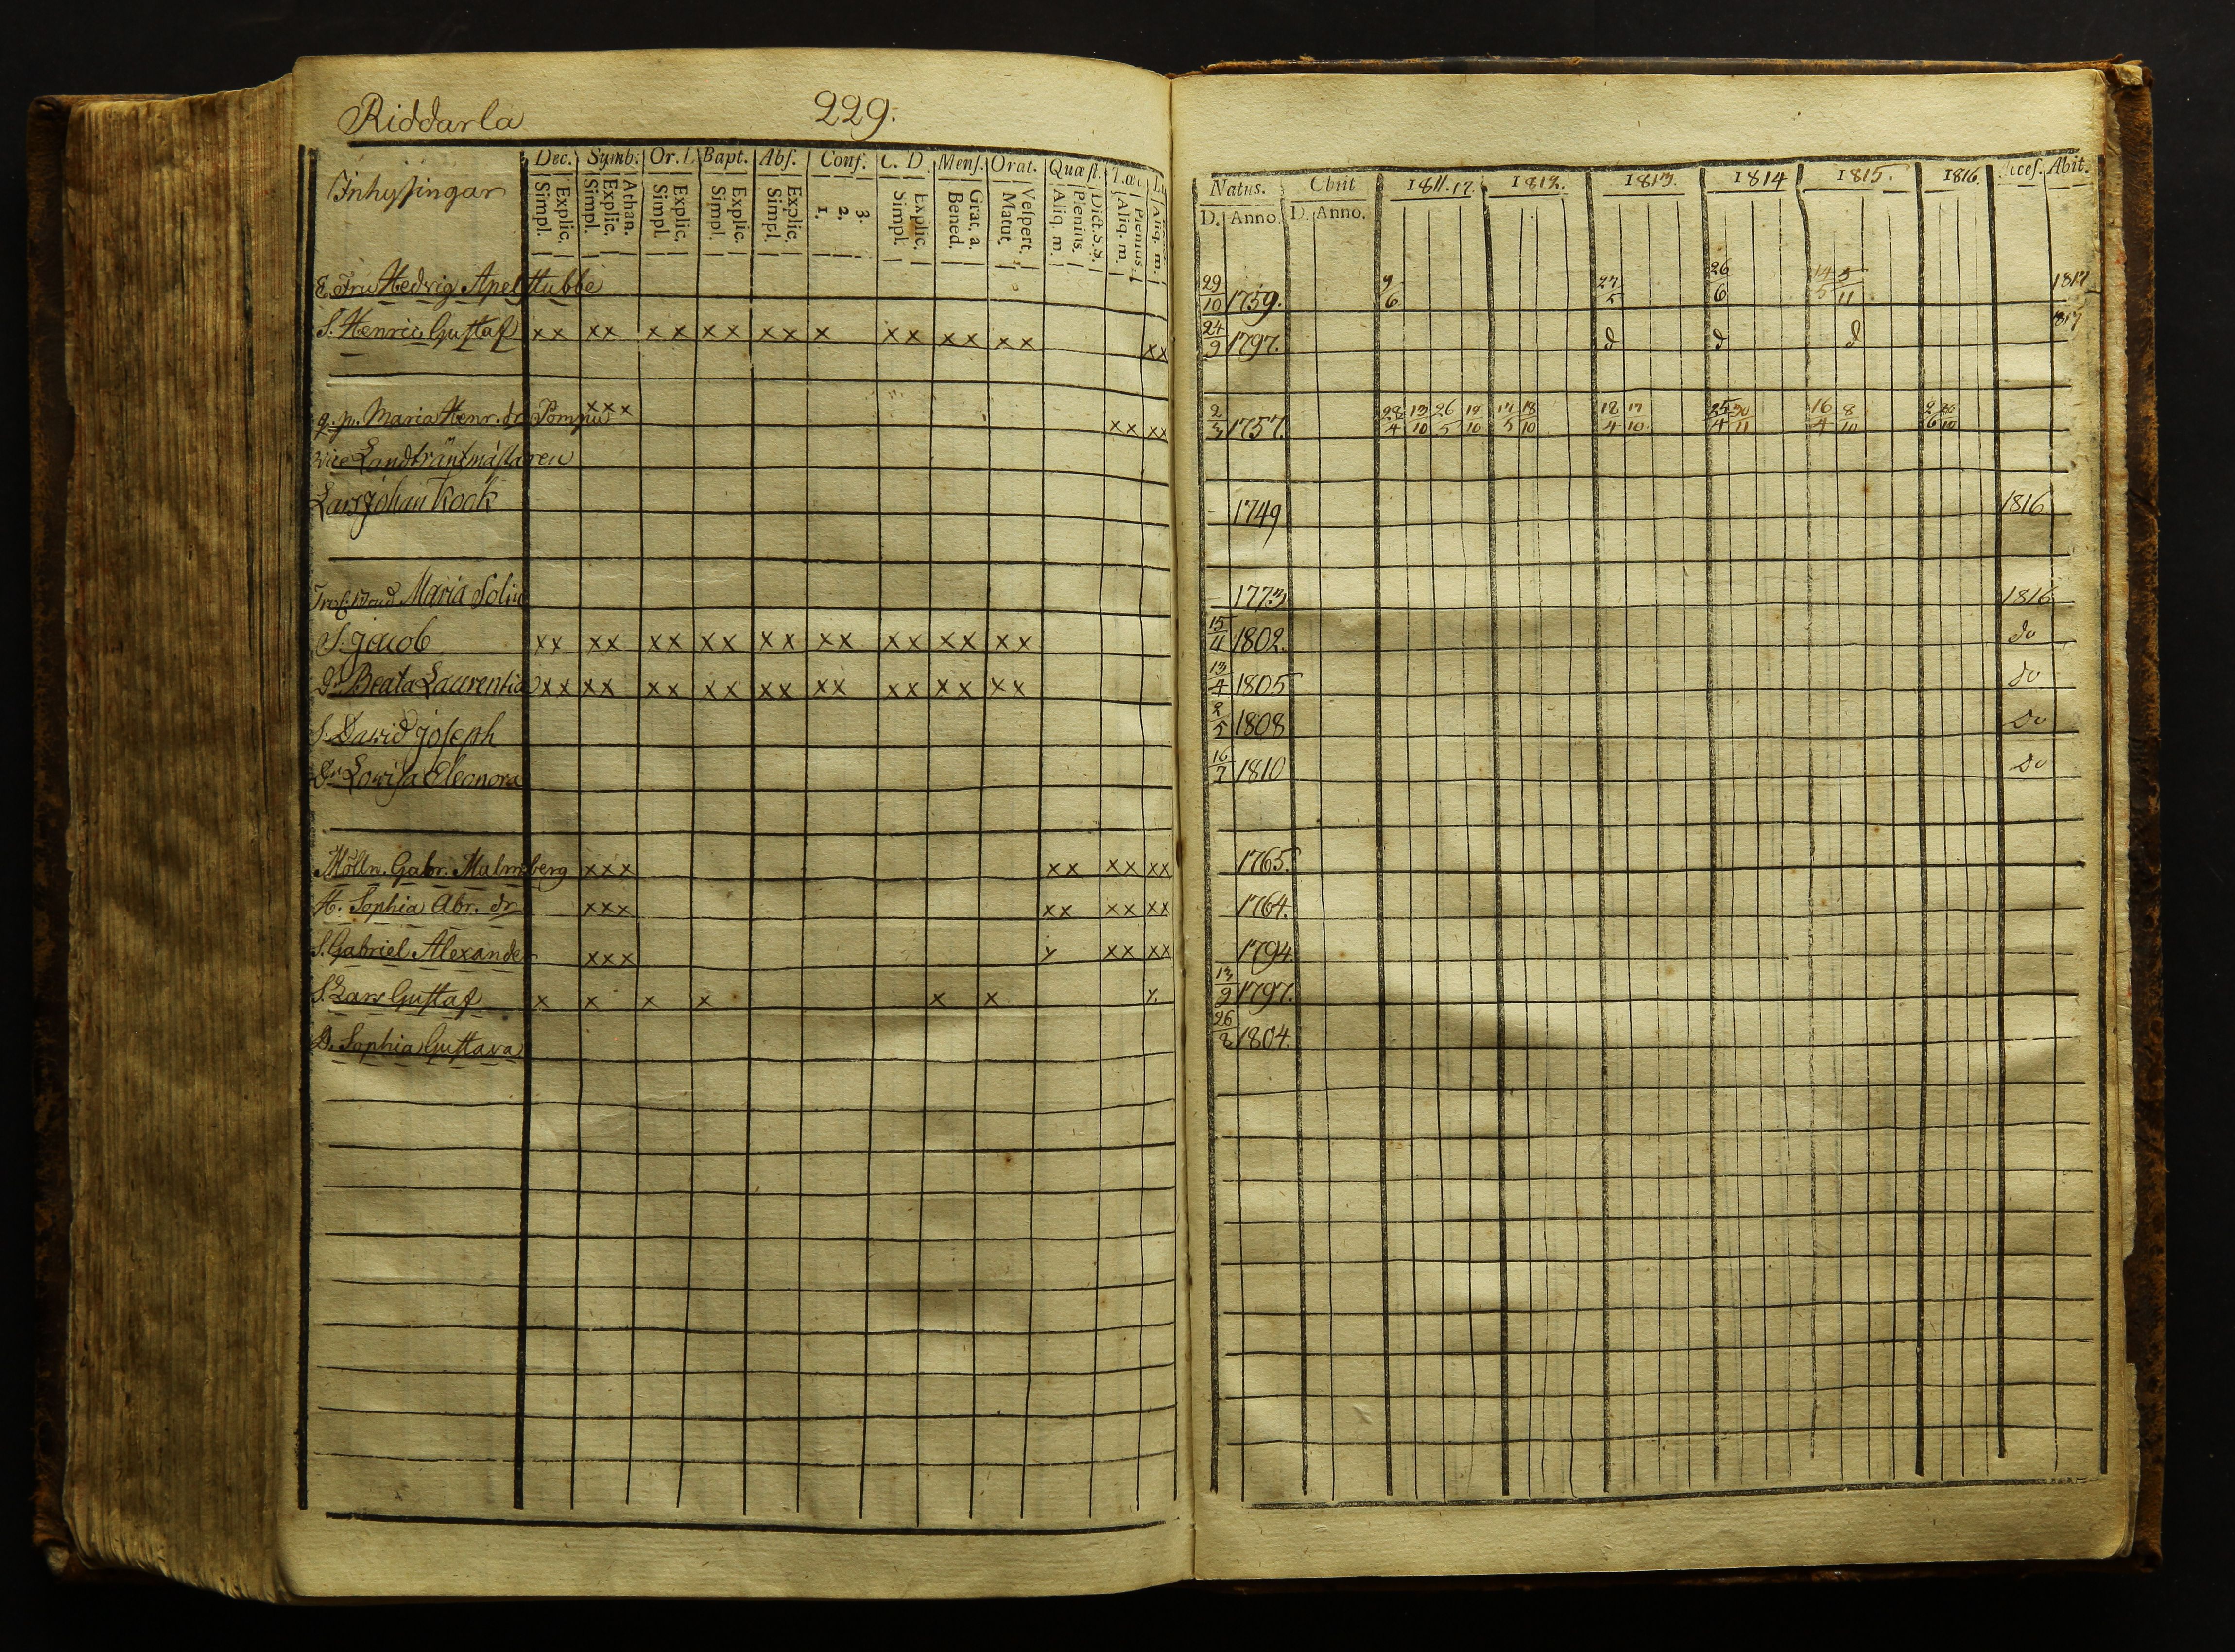 Riddarla 229.
Inhysingar Dec. Symb. Or. Bapt. Abs. Conf. C. D. Mens. Orat. Quæst.
Simpl. Explic. Simpl. Explic. Athan. Simpl. Explic. Simpl. Explic. Simpl. Explic. 1, 2, 3. Simpl. Explic. Bened. Grat. a. Matut. Vespert. Aliq. m. Plenius. Dict. S. S. Aliq. m. Plenius. Aliq. m.
Natus. Obiit 1811.12. 1812. 1813. 1814 1815. 1816. Acces. Abit.
D. Anno. D. Anno.
E. Fru Hedvig Apelstubbe 29/10 1759. 9/6 27/5 26/6 14/5 5/11 1817
S. Henric Gustaf xx xx xx xx xx x xx xx xx xx 24/9 1797. d d d 1817
g. p. Maria Henr. dr Pomp xxx xx xx 2/3 1757. 28/4 13/10 26/5 19/10 17/5 18/10 18/4 17/10 25/4 30/11 16/4 8/10 2/6 20/10
Vice Landträntmästaren
Lars Johan Kook 1749 1816
Maria Solin 1773 1816
S. Jacob xx xx xx xx xx xx xx xx xx 15/11 1802. do
Dr Beata Laurentia xx xx xx xx xx xx xx xx xx 13/4 1805 do
S. David Joseph 2/5 1808 Do
Dr Lovisa Eleonora 16/7 1810 Do
Mölln. Gabr. Malmberg xxx xx xx xx 1765.
H. Sophia Abr. dr xxx xx xx xx 1764.
S. Gabriel Alexander xxx x xx xx 1794
S. Lars Gustaf x x x x x x x. 13/9 1797.
D. Sophia Gustava 26/8 1804.